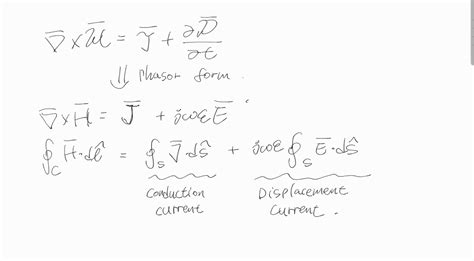 ∇̄ × ℋ̄ = 𝒥̄ + ∂𝒟̄/∂t
⇓ phasor form.
∇̄ × H̄ = J̄ + jωε Ē
∮_C H̄·dℓ̂ = ∮_S J̄·dŝ + jωε ∮_S Ē·dŝ
Conduction current
Displacement current.